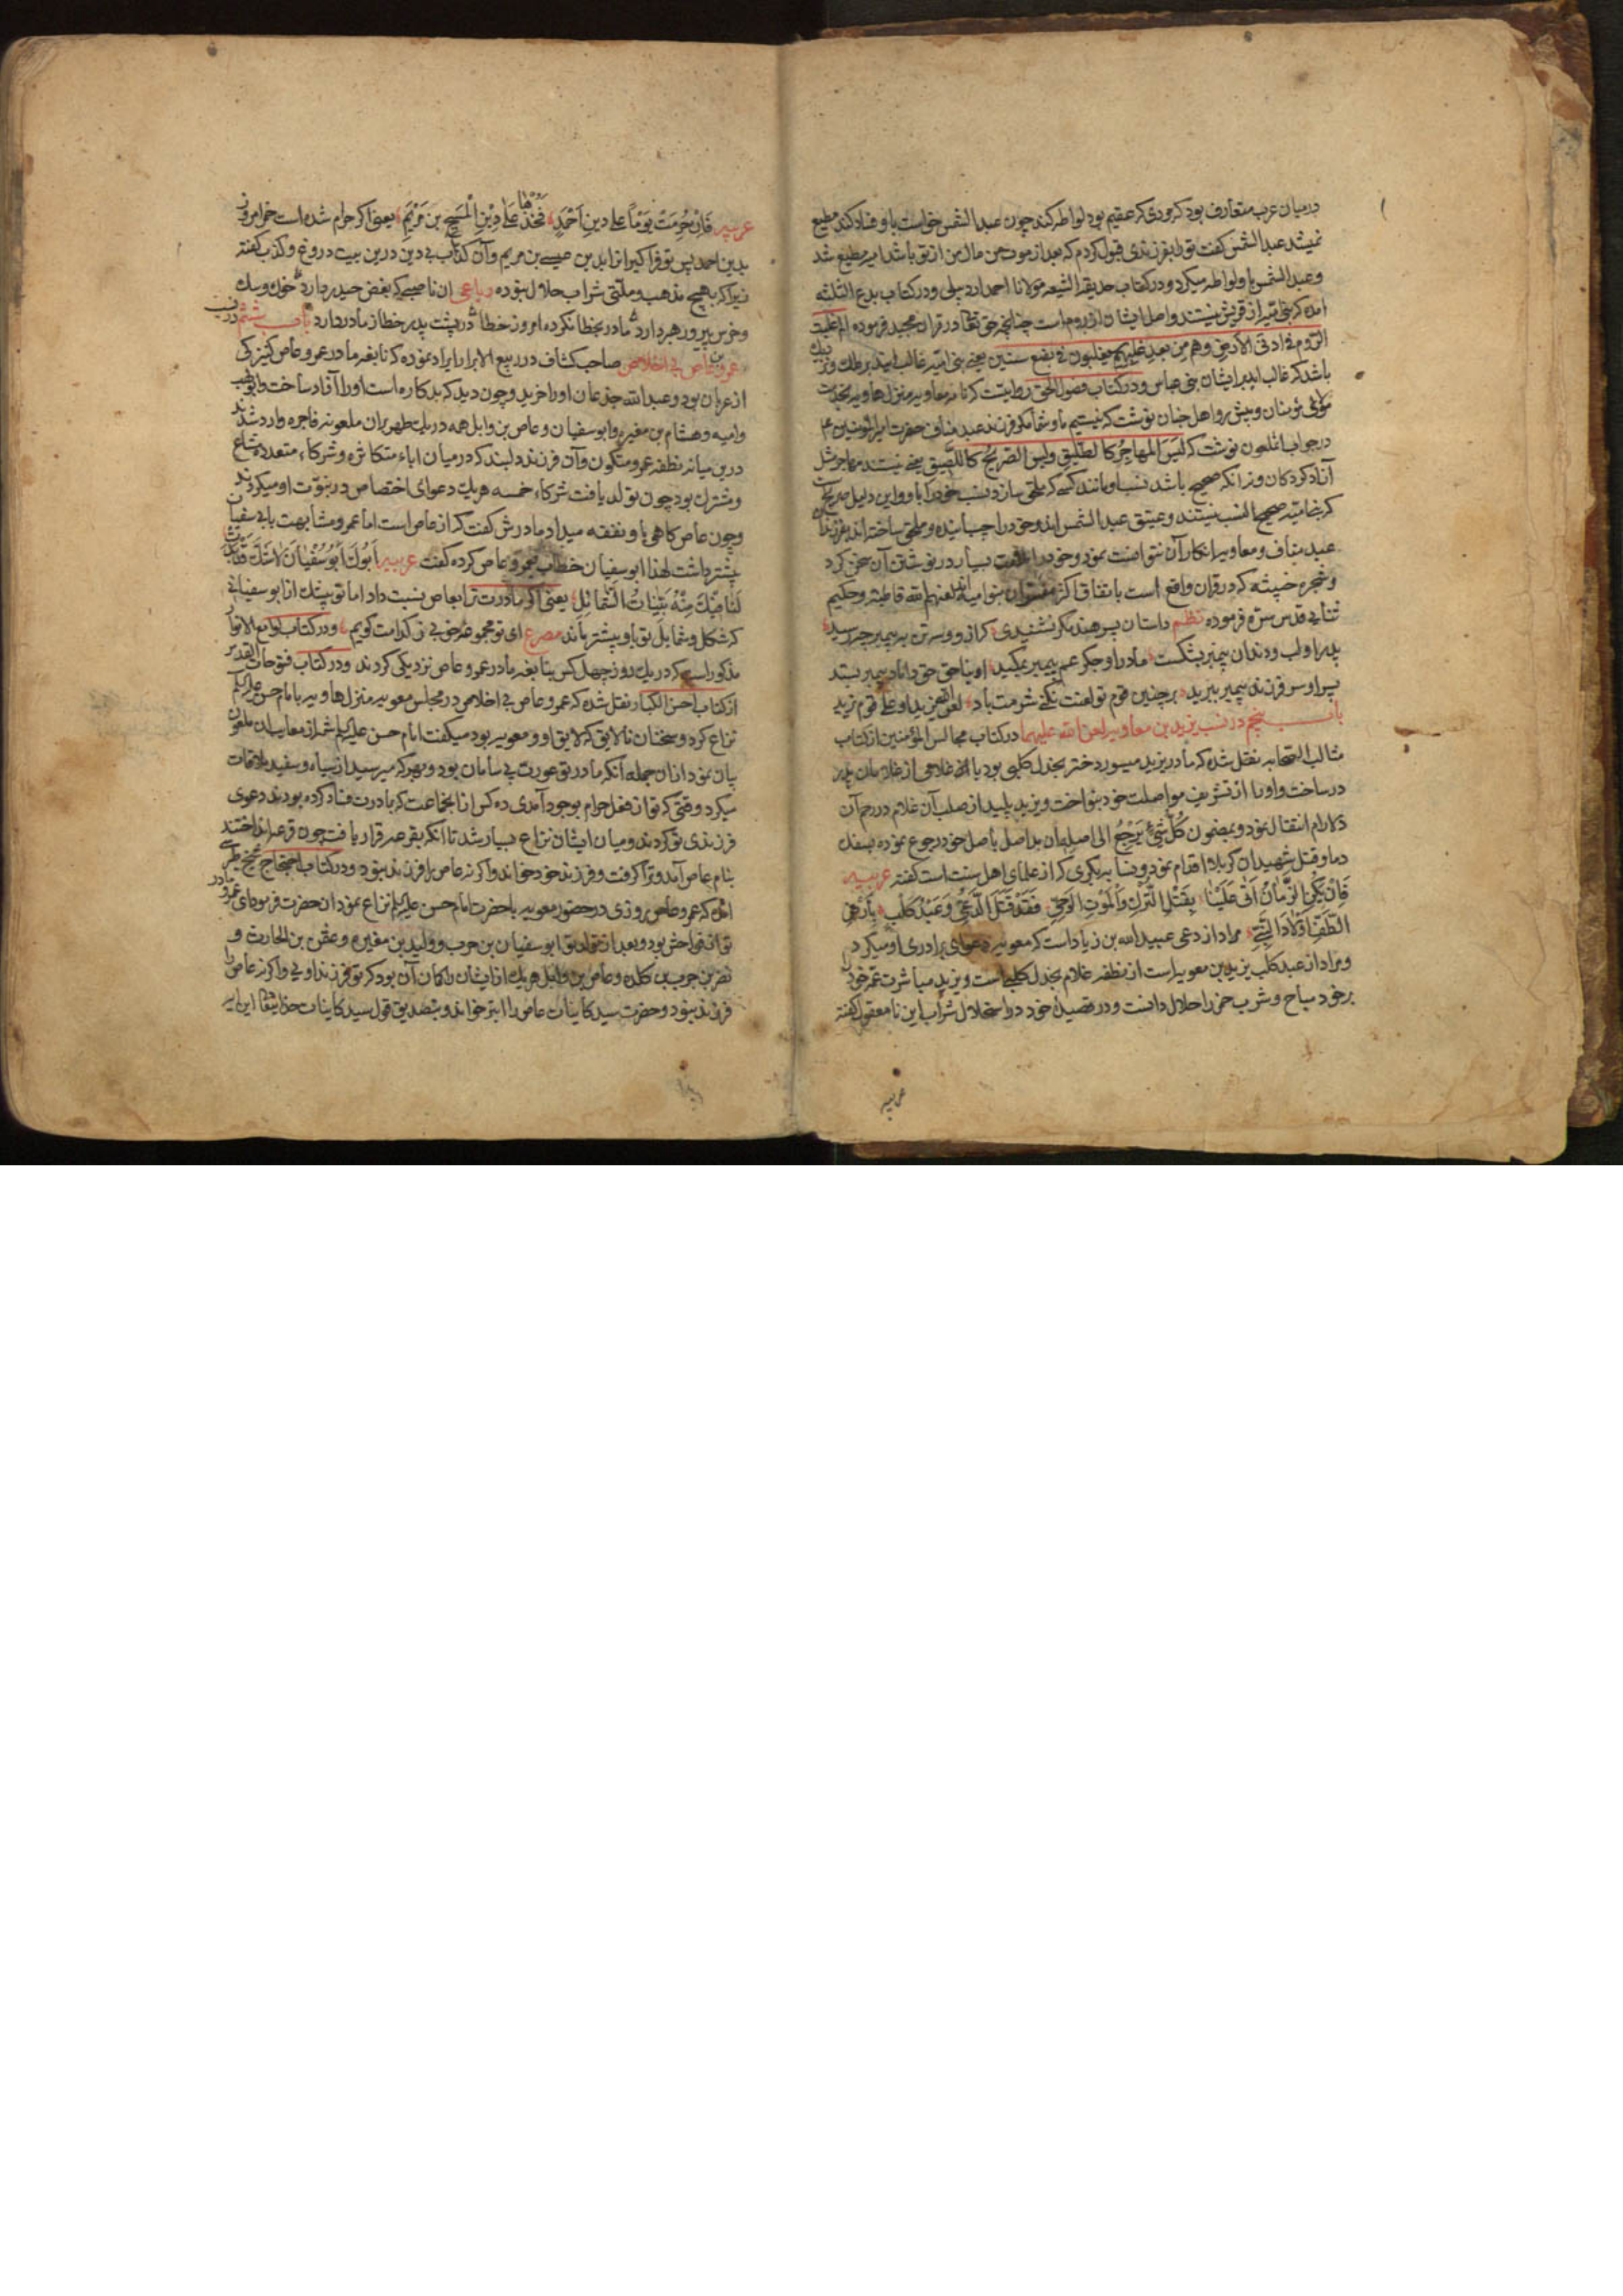 درمیان عرب متعارف بود که مردی که عقیم بود لواطه کند چون عبد الشمس خواست با و فساد کند مطیع
نمیشد عبد الشمس کفت تو را بفرزندی قبول کردم که بعد از موت من مال من از تو باشد امیه مطیع شد
و عبد الشمس با و لواطه میکرد و در کتاب حدیقه الشیعه مولانا احمد اردبیلی و در کتاب بدع الثلثه
امده که بنی امیه از قریش نیستند و اصل ایشان از روم است چنانچه حق تعالی در قران مجید فرموده الم غلبت
الروم فی ادنی الارض و هم من بعد غلبهم سیغلبون فی بضع سنین یعنی بنی امیه غالب ایند بر ملک و نزدیک
باشد که غالب ایند بر ایشان بنی عباس و در کتاب فصول الحق روایتست که نامه معاویه منزل هاویه بخدمت
مولای مؤمنان و پیش رو اهل جنان نوشت که نیستیم ما و شما مکر فرزند عبد مناف حضرت امیر المؤمنین ع
در جواب انملعون نوشت که لیس المهاجر کالطلیق و لیس الصریح کاللصیق یعنی نیستند مهاجر مثل
آزاد کردکان و نه انکه صحیح باشد نسب او مانند کسی که ملحق سازد بنسب خود را با و و این دلیل صریحست
که بنی امیه صحیح النسب نیستند و عتیق عبد الشمس اند و خود را چسبانیده و ملحق ساخته اند بفرزندان
عبد مناف و معاویه انکار آن نتوانست نمود و خود در
و شجره خبیثه که در قران واقع است باتفاق اکثر مفسران بنو امیه اند لعنهم الله قاطبة و حکیم
ثنایی قدس سره فرموده نظم داستان پسر هند مکر نشنیدی که از و و سه تن به پیمبر چه رسید
پدر او لب و دندان پیمبر بشکست مادر او جکر عم پیمبر بمکید او بناحق حق داماد پیمبر بستد
پسر او سر فرزند پیمبر ببرید بر چنین قوم تو لعنت نکنی شرمت باد لعن الله یزیدا و علی قوم یزید
باب پنجم در نسب یزید بن معاویه لعن الله علیهما در کتاب مجالس المؤمنین از کتاب
مثالب الصحابه نقل شده که مادر یزید میسور دختر بجدل کلبی بود با غلامی از غلامان پدر
در ساخت و او را از تشریف مواصلت خود بنواخت و یزید پلید از صلب آن غلام در رحم آن
دلارام انتقال نمود و بمضمون کل شیء یرجع الی اصله آن بد اصل باصل خود رجوع نموده بسفک
دماء و قتل شهیدان کربلا اقدام نمود و نسابه بکری که از علمای اهل سنت است کفته عربیه
فان یکن الزمان اتی علینا بقتل الترک و الموت الوحی فقد قتل الدعی و عبد کلب بارض
الطف اولاد النبی مراد از دعی عبید الله بن زیاد است که معویه دعوای برادری او میکرد
و مراد از عبد کلب یزید بن معویه است از نطفه غلام بجدل کلبی است و یزید مباشرت عمه خود
بر خود مباح و شرب خمر را حلال دانست و در قصیده خود در استحلال شراب این نا معقول کفته
عربیه
عربیه فان حرمت یوما علی دین احمد فخذها علی دین المسیح بن مریم یعنی اکر حرام شده است خمر امروز
بدین احمد پس تو فرا کیر انرا بدین عیسی بن مریم و آن کذاب بی دین درین بیت دروغ و کذب کفته
زیرا که بهیچ مذهب و ملتی شراب حلال نبوده رباعی ان ناصبی که بغض حیدر دارد خوک و سک
و خرس پیرو رهبر دارد مادر بخطا نکرده امروز خطا در پشت پدر خطا ز مادر دارد باب ششم در نسب
عمرو بن عاص بی اخلاص صاحب کشاف در ربیع الابرار ایراد نموده که نابغه مادر عمرو عاص کنیزکی
از عربان بود و عبد الله جذعان او را خرید و چون دید که بد کاره است او را آزاد ساخت و ابولهب
و امیه و هشام بن مغیره و ابو سفیان و عاص بن وایل همه در یک طهر بران ملعونه فاجره وارد شدند
درین میانه نطفه عمرو متکون و آن فرزند دلبند که در میان اباء متکاثره و شرکاء متعدده مشاع
و مشترک بود چون تولد یافت شرکاء خمسه هر یک دعوای اختصاص در بنوت او میکردند
و چون عاص کاهی با و نفقه میداد مادرش کفت که از عاص است اما عمرو مشابهت بابی سفیان
پیشتر داشت لهذا ابو سفیان خطاب بعمرو عاص کرده کفت عربیه ابوک ابو سفیان لا شک قد بدت
لنا فیک منه بینات الشمائل یعنی اکر مادرت ترا بعاص نسبت داد اما تو بیشک از ابو سفیانی
که شکل و شمایل تو با و پیشتر ماند مصرع ای تو مجموعه خوبی ز کدامت کویم و در کتاب لوامع الانوار
مذکور است که در یک روز چهل کس بنابغه مادر عمرو عاص نزدیکی کردند و در کتاب فتوحات القدس
از کتاب احسن الکبار نقل شده که عمرو عاص بی اخلاص در مجلس معویه منزل هاویه با امام حسن علیه السلم
نزاع کرد و سخنان نالایق که لایق او و معویه بود میکفت امام حسن علیه السلم شمه از معایب ان ملعون
بیان نمود از ان جمله آنکه مادر تو عورت بی سامان بود و بهر که میرسید از سیاه و سفید ملاقات
میکرد وقتی که تو از فعل حرام بوجود آمدی ده کس از انجماعت که بمادرت فساد کرده بودند دعوی
فرزندی تو کردند و میان ایشان نزاع بسیار شد تا انکه بقرعه قرار یافت چون قرعه انداختند
بنام عاص آمد و ترا کرفت و فرزند خود خواند و اکر نه عاص را فرزند نبود و در کتاب احتجاج شیخ طبرسی
امده که عمرو عاص روزی در حضور معویه با حضرت امام حسن علیه السلم نزاع نمود ان حضرت فرمود ای عمرو مادر
تو از فواحش بود و بعد از تولد تو ابو سفیان بن حرب و ولید بن مغیره و عثمن بن الحارث و
نضر بن کلده و عاص بن وایل هر یک از ایشان را کمان آن بود که تو فرزند اویی و اکر نه عاص را
فرزند نبود و حضرت سید کاینات عاص را ابتر خواند و بتصدیق قول سید کاینات خدایتعالی این ایه